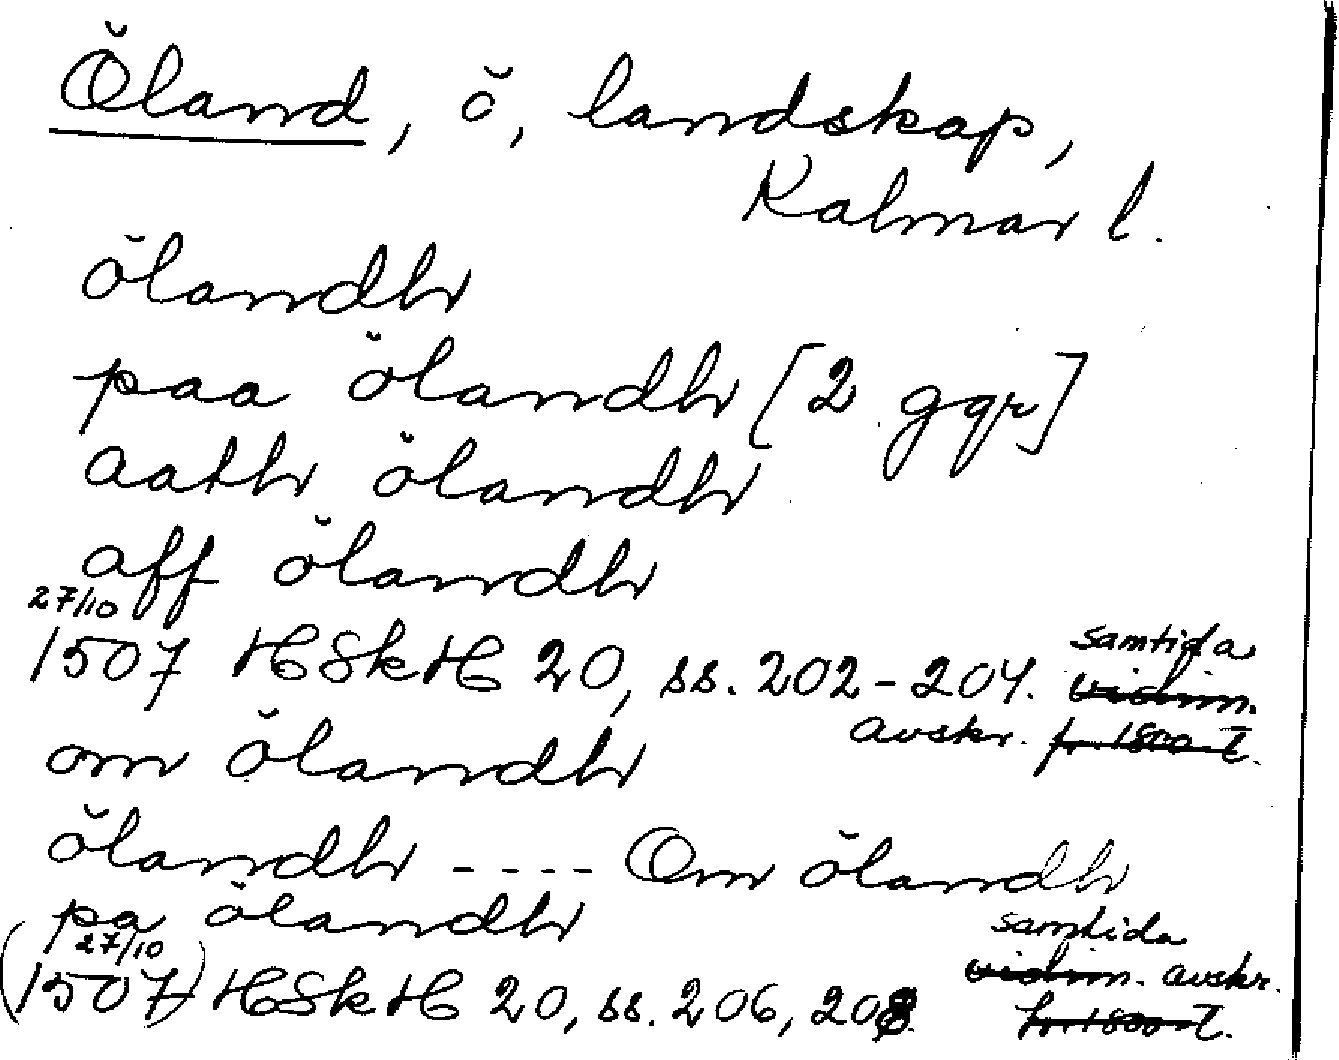 Öland, ö, landskap,
Kalmar l.
ölandh
paa ölandh [2 ggr]
aath ölandh
aff ölandh
27/10
1507 HSkH 20, ss. 202-204. samtida
vidim.
avskr. fr. 1800-t.
om ölandh
ölandh ---- Om ölandh
pa ölandh
27/10 samtida
(1507) HSkH 20, ss. 206, 208. vidim. avskr.
fr. 1800-t.